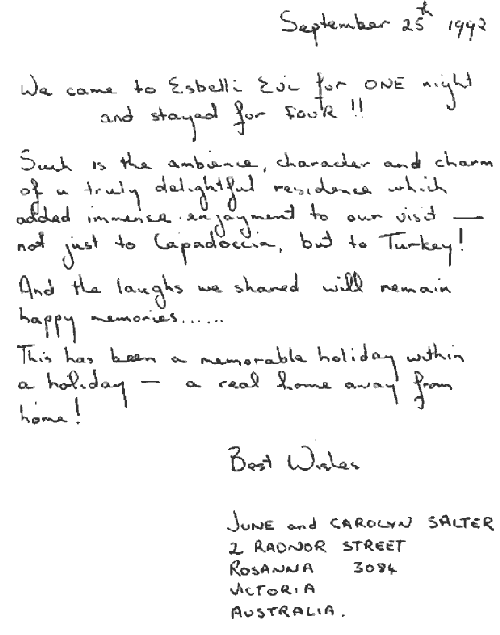 September 25th 1992
We came to Esbelli Evi for ONE night
and stayed for FOUR !!
Such is the ambience, character and charm
of a truly delightful residence which
added immense enjoyment to our visit —
not just to Capadoccia, but to Turkey!
And the laughs we shared will remain
happy memories......
This has been a memorable holiday within
a holiday — a real home away from
home!
Best Wishes
JUNE and CAROLYN SALTER
2 RADNOR STREET
ROSANNA 3084
VICTORIA
AUSTRALIA.